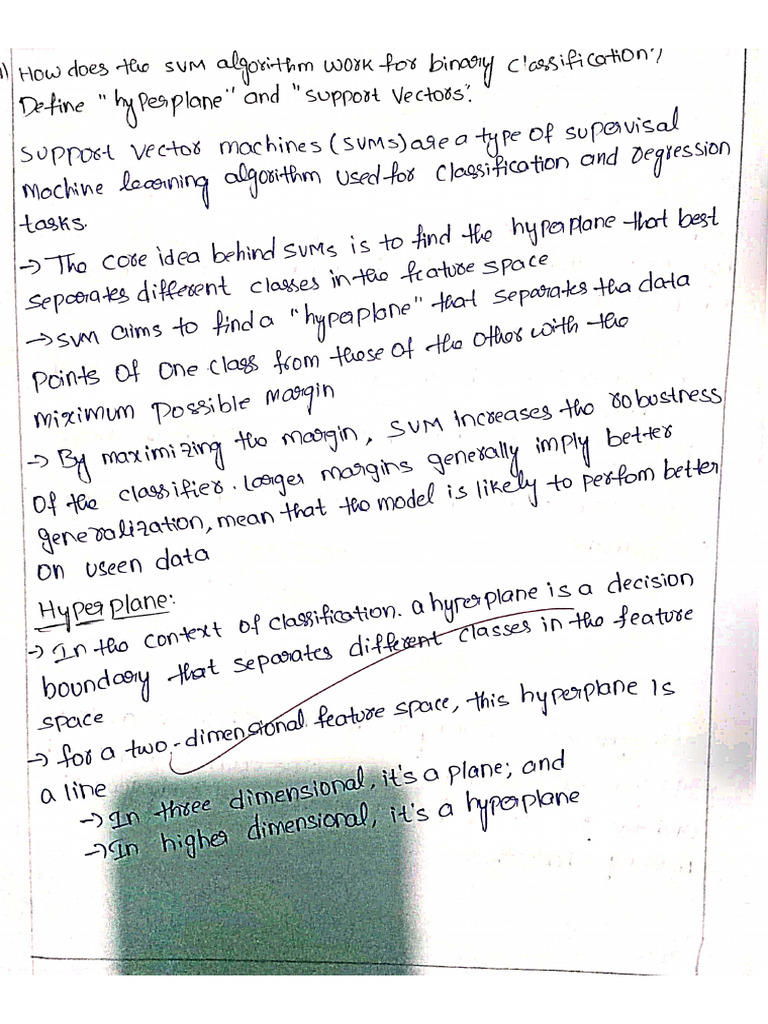 1) How does the SVM algorithm work for binary classification?
Define "hyperplane" and "support vectors".
Support vector machines (SVMs) are a type of supervisal
Machine learning algorithm used for classification and Degression
tasks.
→ The core idea behind SVMs is to find the hyperplane that best
seperates different classes in the feature space
→ SVM aims to find a "hyperplane" that separates the data
points of one class from those of the other with the
miximum possible margin
→ By maximizing the margin, SVM increases the robustness
of the classifier. Larger margins generally imply better
generalization, mean that the model is likely to perfom better
on useen data
Hyperplane:
→ In the context of classification. a hyperplane is a decision
boundary that separates different classes in the feature
space
→ for a two-dimensional feature space, this hyperplane is
a line
→ In three dimensional, it's a plane; and
→ In higher dimensional, it's a hyperplane